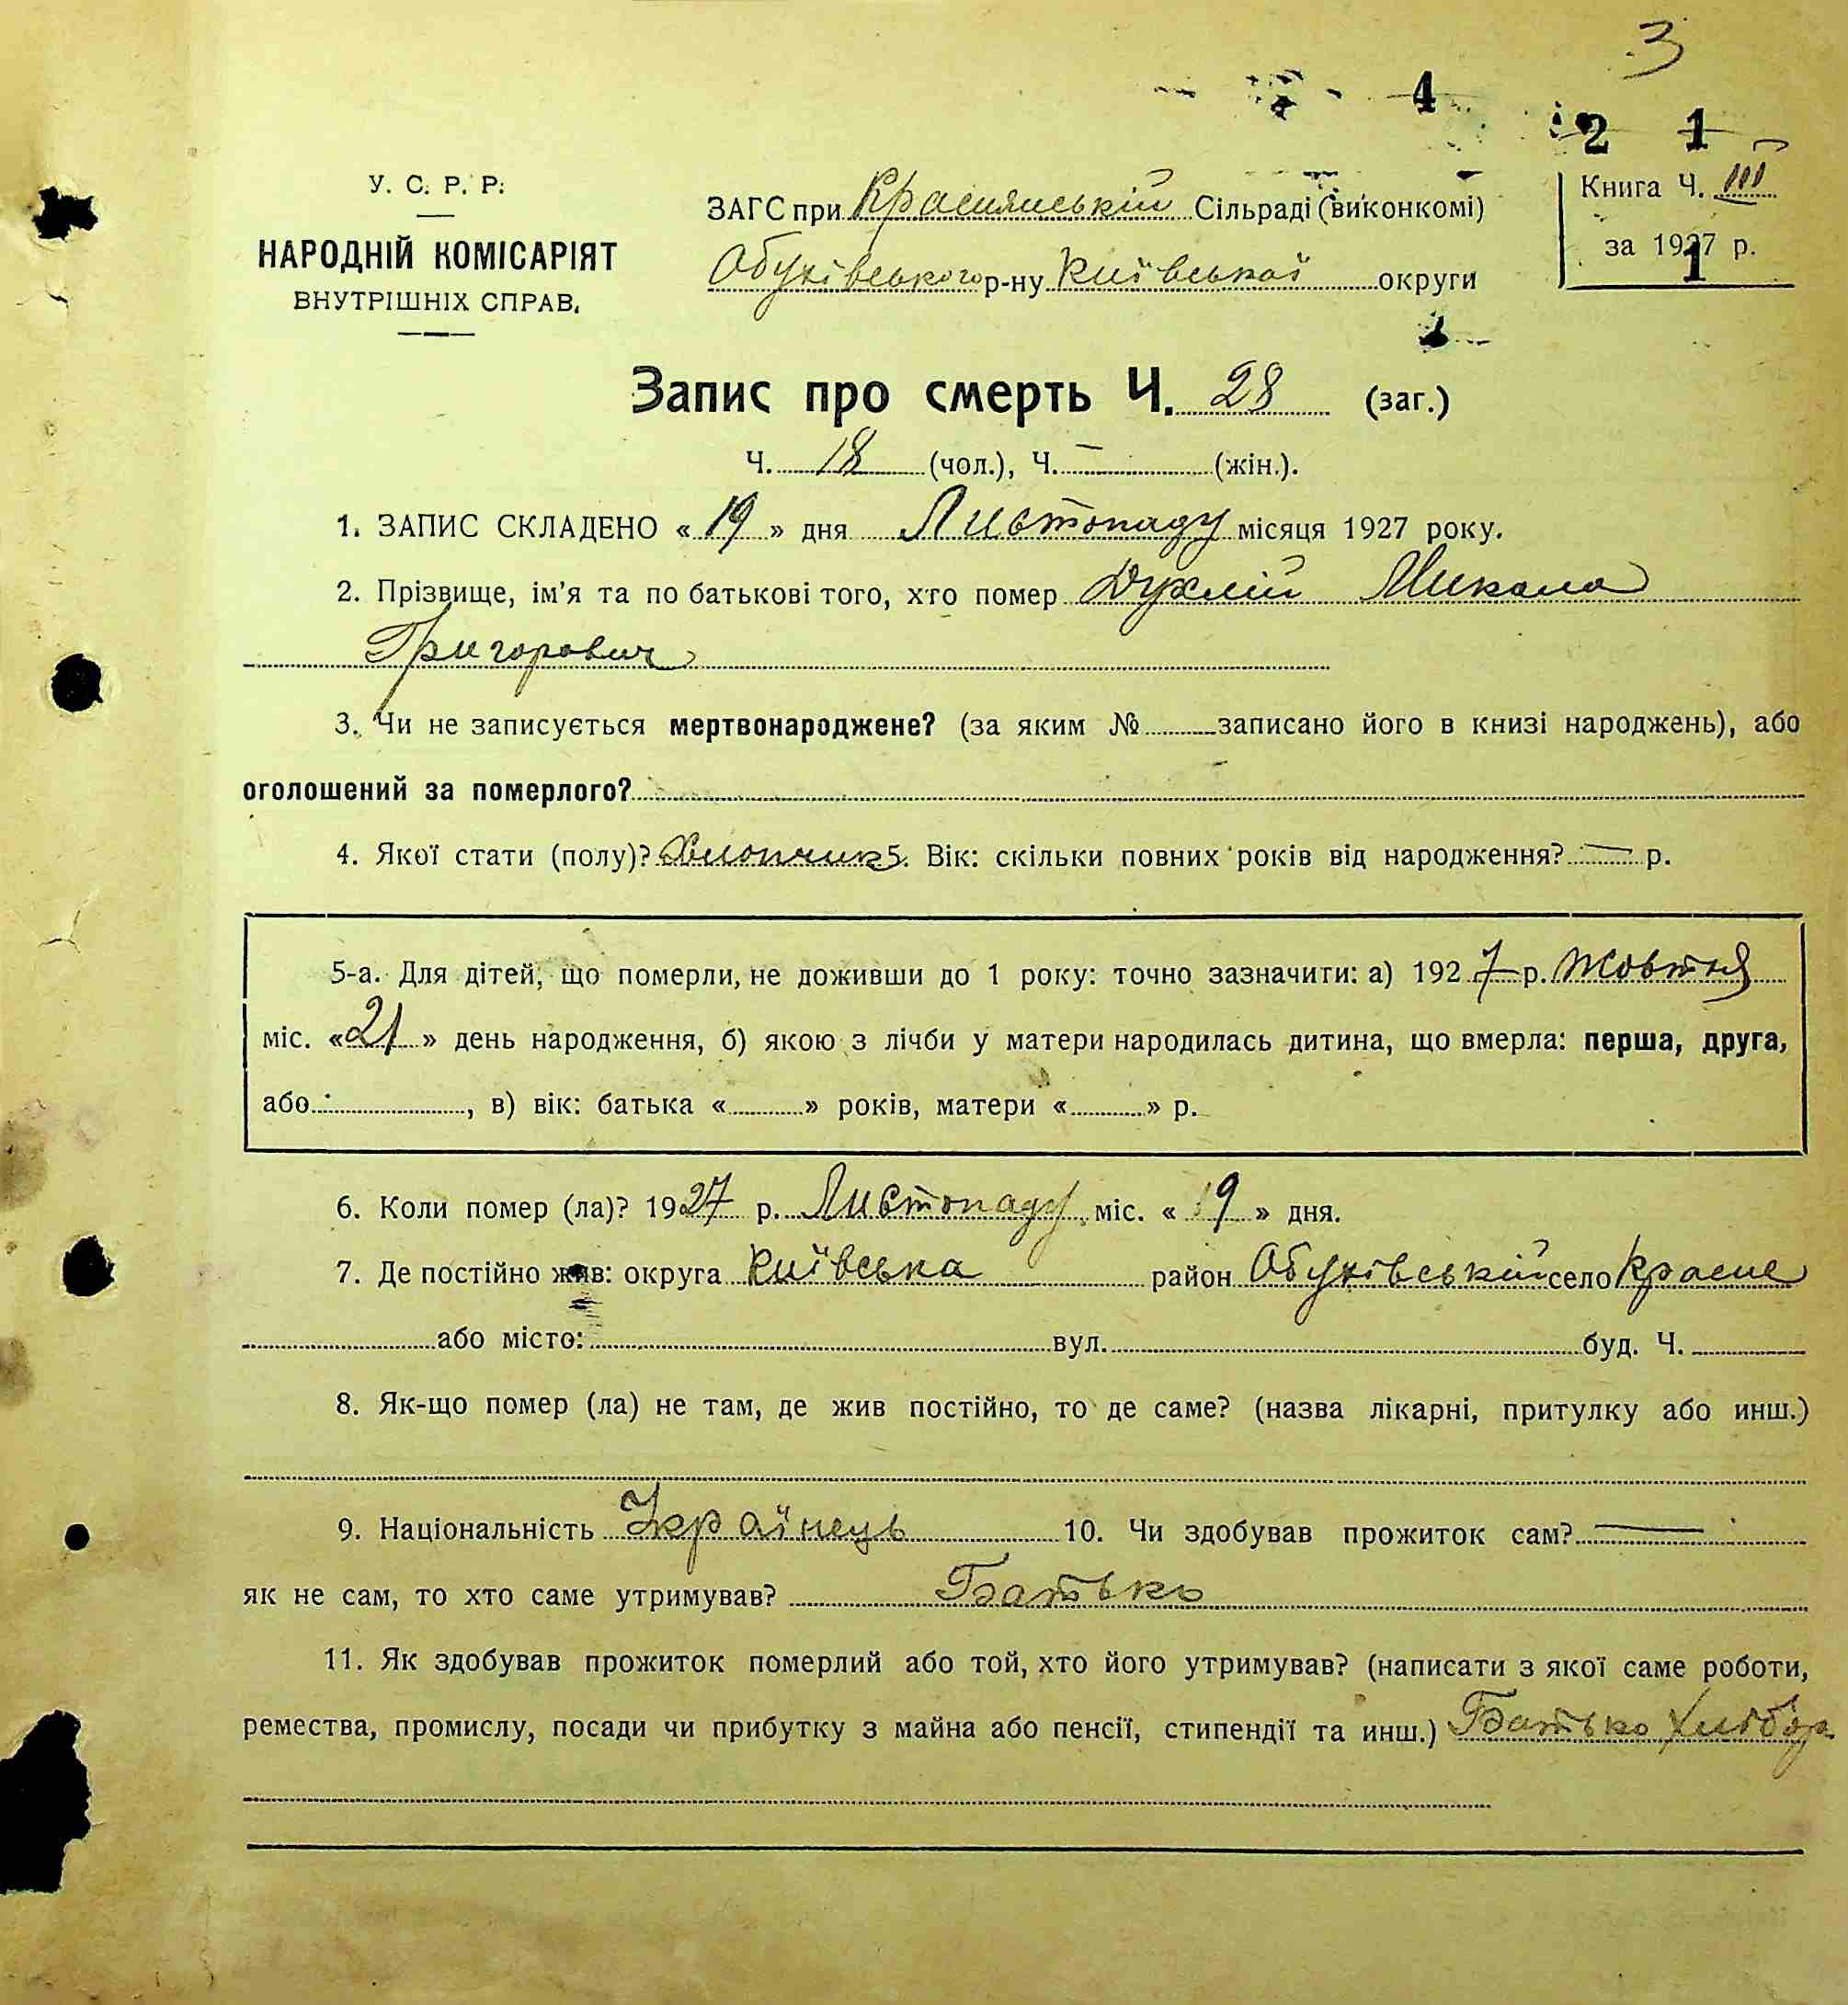 3
4
2 1
У. С. Р. Р.
НАРОДНІЙ КОМІСАРІЯТ
ВНУТРІШНІХ СПРАВ.
ЗАГС при Краснянській Сільраді (виконкомі)
Обухівського р-ну Київської округи
Книга Ч. III
за 1927 р.
1
Запис про смерть Ч. 28 (заг.)
Ч. 18 (чол.), Ч. — (жін.).
1. ЗАПИС СКЛАДЕНО « 19 » дня Листопаду місяця 1927 року.
2. Прізвище, ім'я та по батькові того, хто помер Микола
Григорович
3. Чи не записується мертвонароджене? (за яким № записано його в книзі народжень), або
оголошений за померлого?
4. Якої стати (полу)? Хлопчик 5. Вік: скільки повних років від народження? — р.
5-а. Для дітей, що померли, не доживши до 1 року: точно зазначити: а) 1927 р. Жовтня
міс. «21» день народження, б) якою з лічби у матери народилась дитина, що вмерла: перша, друга,
або , в) вік: батька « » років, матери « » р.
6. Коли помер (ла)? 1927 р. Листопаду міс. « 19 » дня.
7. Де постійно жив: округа Київська район Обухівський село Красне
або місто: вул. буд. Ч.
8. Як-що помер (ла) не там, де жив постійно, то де саме? (назва лікарні, притулку або инш.)
9. Національність Українець 10. Чи здобував прожиток сам? —
як не сам, то хто саме утримував? Батько
11. Як здобував прожиток померлий або той, хто його утримував? (написати з якої саме роботи,
ремества, промислу, посади чи прибутку з майна або пенсії, стипендії та инш.) Батько